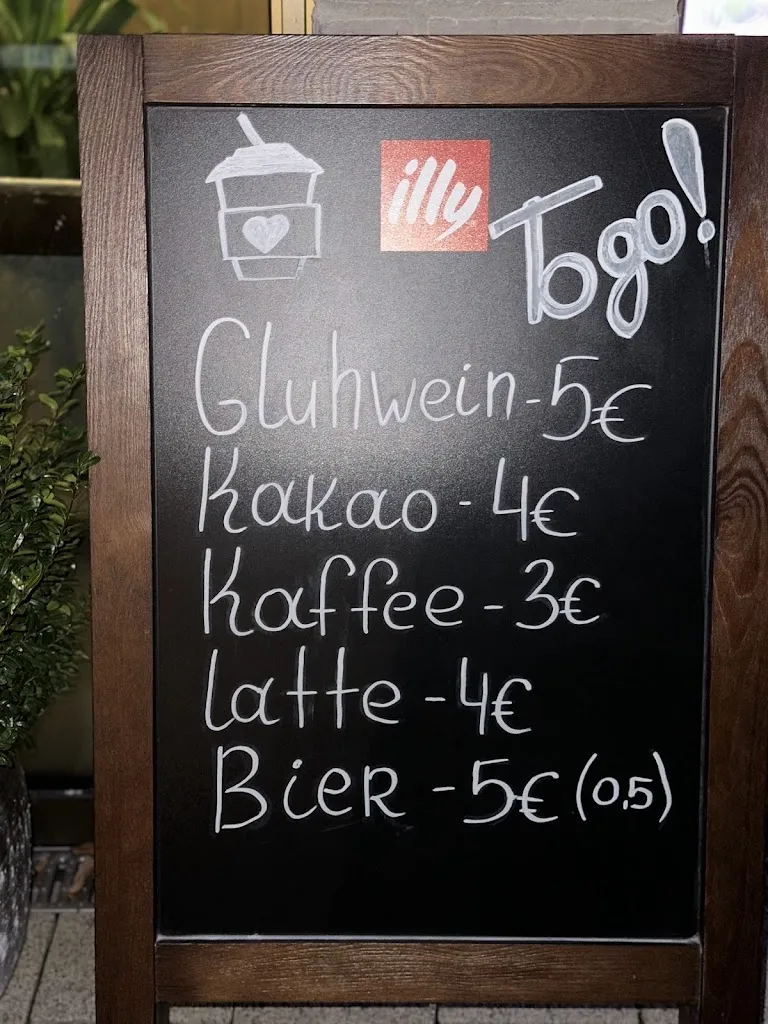 illy
To go!
Gluhwein - 5€
Kakao - 4€
Kaffee - 3€
Latte - 4€
Bier - 5€ (0,5)